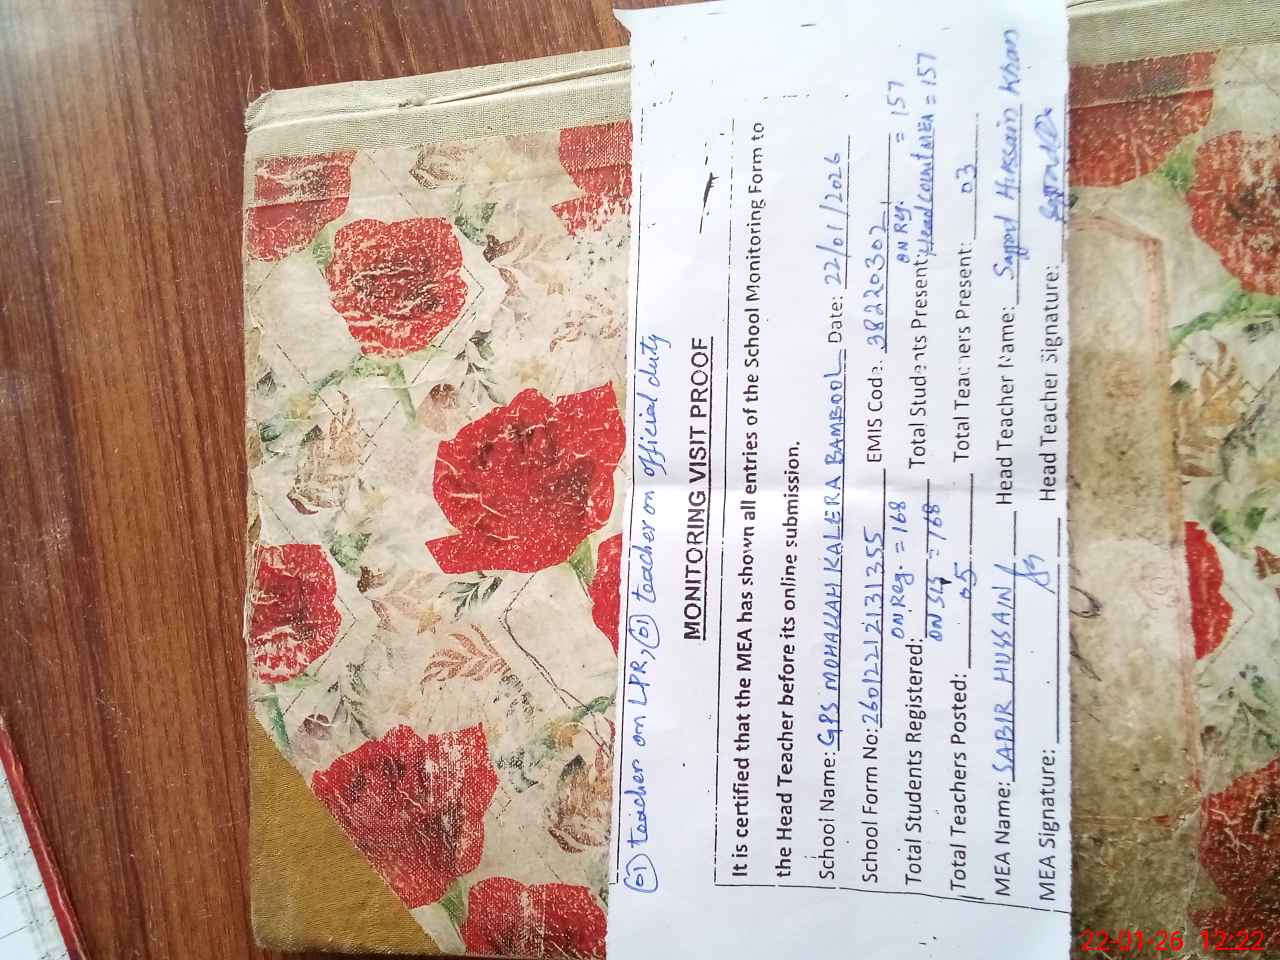 (01) teacher on LPR, (01) teacher on official duty
MONITORING VISIT PROOF
It is certified that the MEA has shown all entries of the School Monitoring Form to
the Head Teacher before its online submission.
School Name: GPS MOHALLAH KALERA BAMBOOL Date: 22/01/2026
School Form No: 26012212131355 EMIS Code: 38220302
Total Students Registered: ON Reg. = 168 ON SLS = 168 Total Students Present: ON Reg. = 157 Head Count MEA = 157
Total Teachers Posted: 05 Total Teachers Present: 03
MEA Name: SABIR HUSSAIN Head Teacher Name: Sajjad Hussain Khan
MEA Signature: Head Teacher Signature:
22-01-26 12:22